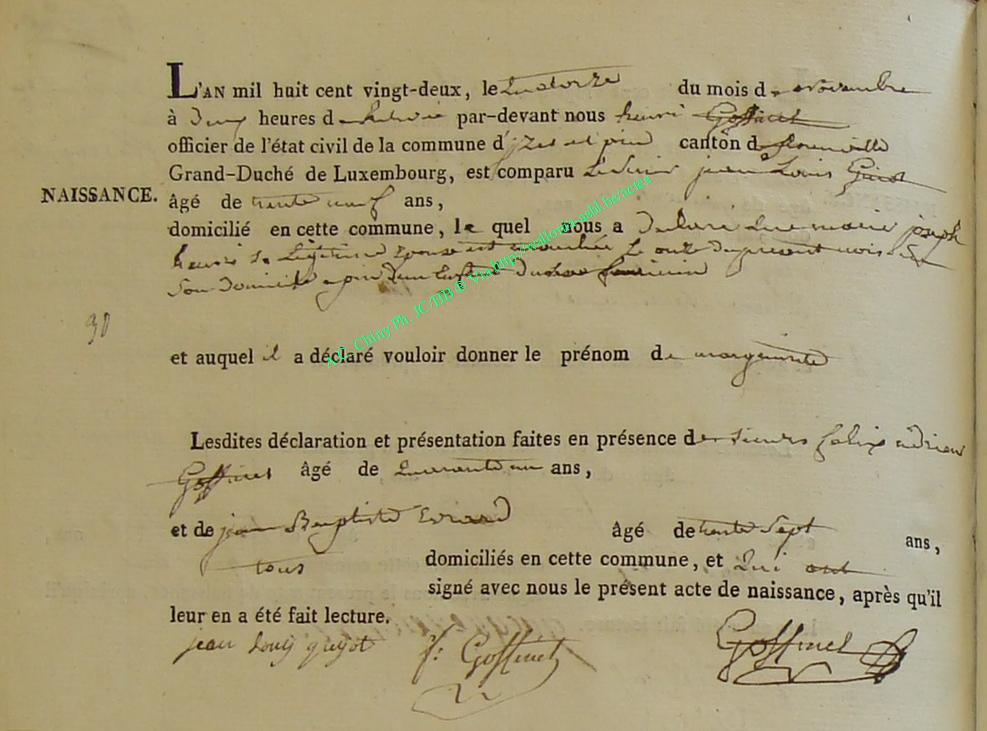 L'AN mil huit cent vingt-deux, le quatorze du mois de novembre
à deux heures de par-devant nous henri Goffinet
officier de l'état civil de la commune d'izel et pin canton de florenville
Grand-Duché de Luxembourg, est comparu Le Sieur jean Louis
NAISSANCE.
âgé de trente neuf ans,
domicilié en cette commune, le quel nous a declaré que marie joseph
henri sa Légitime epouse est accouchée Le onze du present mois
Son domicile a pin d'un Enfant du Sexe feminin
A.L. Chiny Ph. JC THB
30
et auquel il a déclaré vouloir donner le prénom de marguerite
Lesdites déclaration et présentation faites en présence des sieurs felix adrien
Goffinet âgé de quarante un ans,
et de jean Baptiste Evrard âgé de trente Sept ans,
tous domiciliés en cette commune, et qui ont
signé avec nous le présent acte de naissance, après qu'il
leur en a été fait lecture.
jean Louis f: Goffinet Goffinet